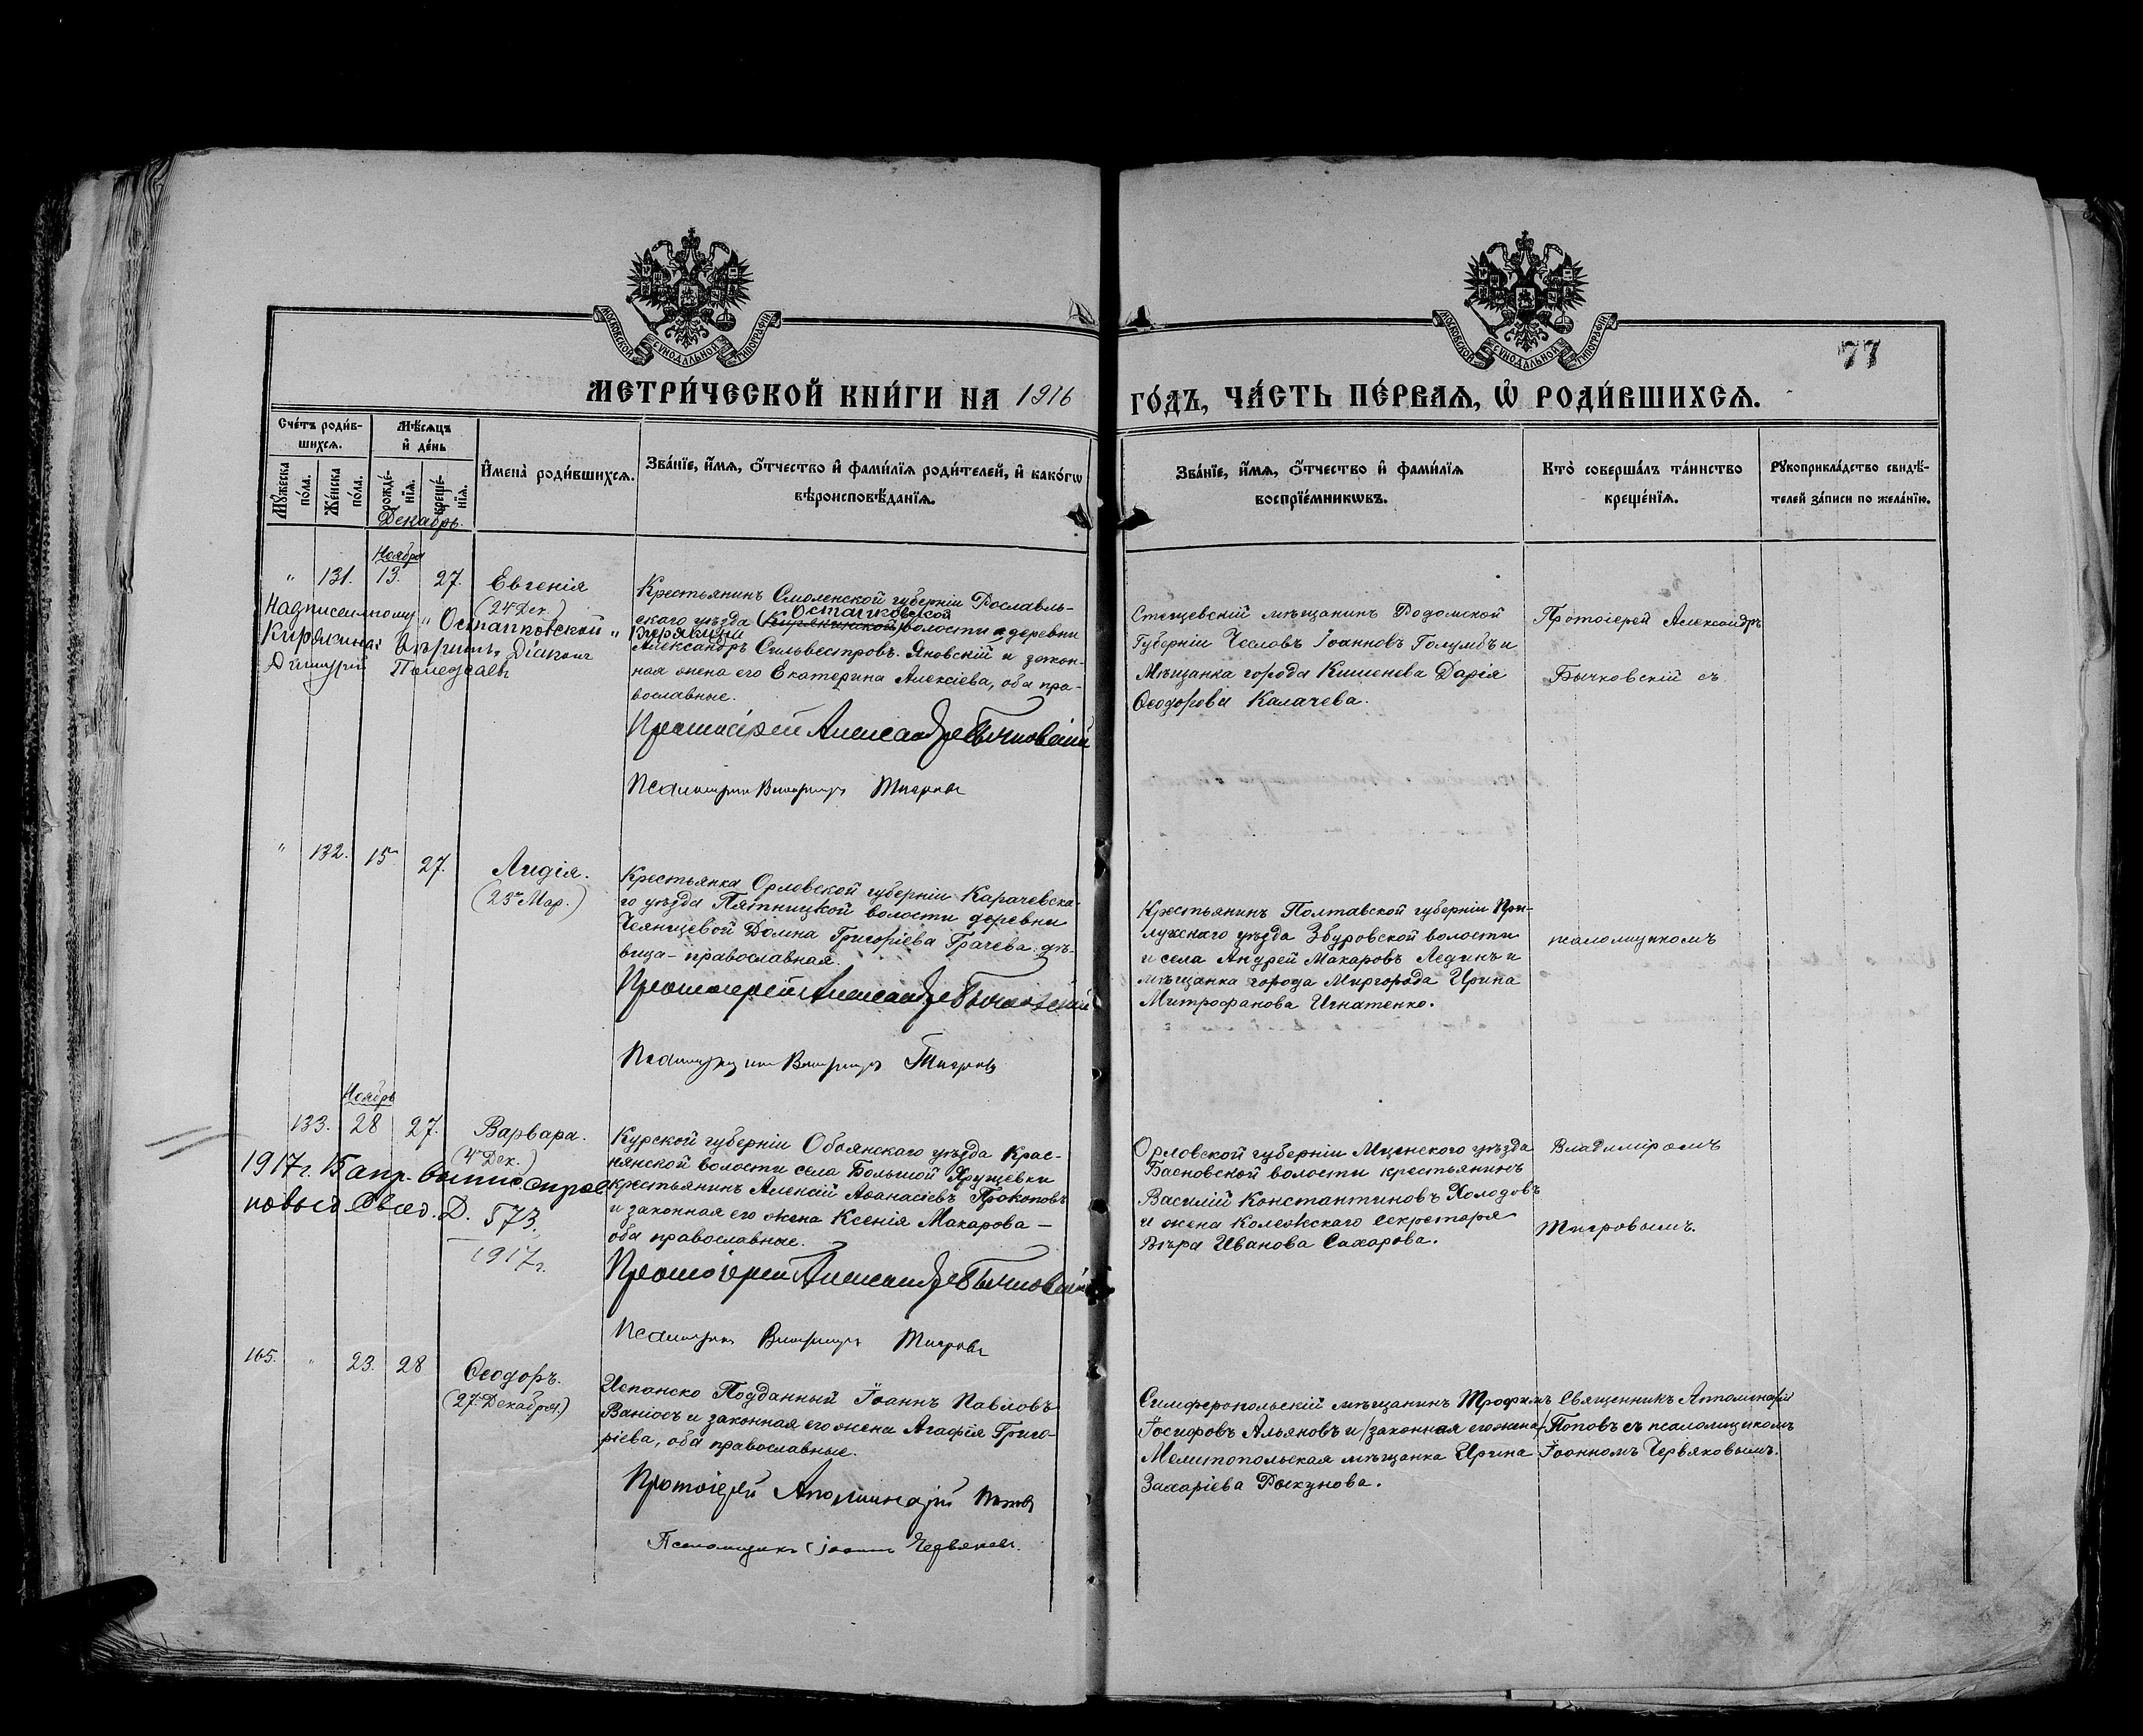 МОСКОВСКОЙ СѴНОДАЛЬНОЙ ТИПОГРАФІИ
МОСКОВСКОЙ СѴНОДАЛЬНОЙ ТИПОГРАФІИ
77
МЕТРИ́ЧЕСКОЙ КНИ́ГИ НА 1916 ГО́ДЪ, ЧА́СТЬ ПЕ́РВАЯ, Ѡ҆ РОДИ́ВШИХСЯ.
Сче́тъ роди́в-
шихся.
Мꙋ́жеска по́ла.
Же́нска по́ла.
Мѣ́сяцъ
и҆ де́нь
рожде́-
нїя.
креще́-
нїя.
И҆мена̀ роди́вшихся.
Зва́нїе, и҆́мя, ѻ҆́тчество и҆ фами́лїя роди́телей, и҆ како́гѡ
вѣроисповѣ́данїя.
Зва́нїе, и҆́мя, ѻ҆́тчество и҆ фами́лїя
воспрїе́мникѡвъ.
Кто̀ соверша́лъ та́инство
креще́нїя.
Рꙋкоприкла́дство свидѣ́-
телей за́писи по жела́нїю.
Декабрь.
Ноября
" 131. 13. 27. Евгенія
(24 Дек.)
Крестьянинъ Смоленской губерніи Рославль-
Остапковской
скаго уѣзда (Кирякинской) волости деревни
Кирякина
Александръ Сильвестровъ Яновскій и закон-
ная жена его Екатерина Алексіева, оба пра-
вославные.
Надписанному "Остапковской"
Кирякина вѣрить. Діаконъ
Дімитрій
Протоіерей Александръ Бычковскій
Псаломщикъ Владиміръ Тигровъ
Стещевскій мѣщанинъ Радомской
Губерніи Чеславъ Іоанновъ Голумбъ и
Мѣщанка города Кишенева Дарія
Ѳеодорова Калачева.
Протоіерей Александръ
Бычковскій съ
" 132. 15 27. Лидія.
(23 Мар.)
Крестьянка Орловской губерніи Карачевска-
го уѣзда Пятницкой волости деревни
Домна Григоріева Грачева дѣ-
вица - православная.
Протоіерей Александръ Бычковскій
Псаломщикъ Владиміръ Тигровъ
Крестьянинъ Полтавской губерніи При-
лукскаго уѣзда Збуровской волости
и села Андрей Макаровъ Лединъ и
мѣщанка города Миргорода Ирина
Митрофанова Игнатенко.
псаломщикомъ
Ноября
133. 28 27. Варвара.
(4 Дек.)
1917 г. 15 апр. выпис. справ
новыед. Свед. Д. 573.
1917 г.
Курской губерніи Обоянскаго уѣзда Крас-
нянской волости села Большой Хрущевки
крестьянинъ Алексій Аѳанасіевъ Прокоповъ
и законная его жена Ксенія Макарова —
оба православные.
Протоіерей Александръ Бычковскій
Псаломщикъ Владиміръ Тигровъ
Орловской губерніи Мценскаго уѣзда
Басновской волости крестьянинъ
Василій Константиновъ Холодовъ
и жена Колежскаго Секретаря
Вѣра Иванова Сахарова.
Владиміромъ
Тигровымъ.
165. " 23. 28 Ѳеодоръ.
(27 Декабря.)
Испанско Подданный Іоаннъ Павловъ
Ваніосъ и законная его жена Агафія Григо-
ріева, оба православные.
Протоіерей Аполлинарій Поповъ
Псаломщикъ Іоаннъ Червяковъ.
Симферопольскій мѣщанинъ Трофимъ
Іосифовъ Альяновъ и (законная его жена)
Мелитопольская мѣщанка Ирина
Захаріева Рыкунова.
Священникъ Апполинарій
Поповъ съ псаломщикомъ
Іоанномъ Червяковымъ.